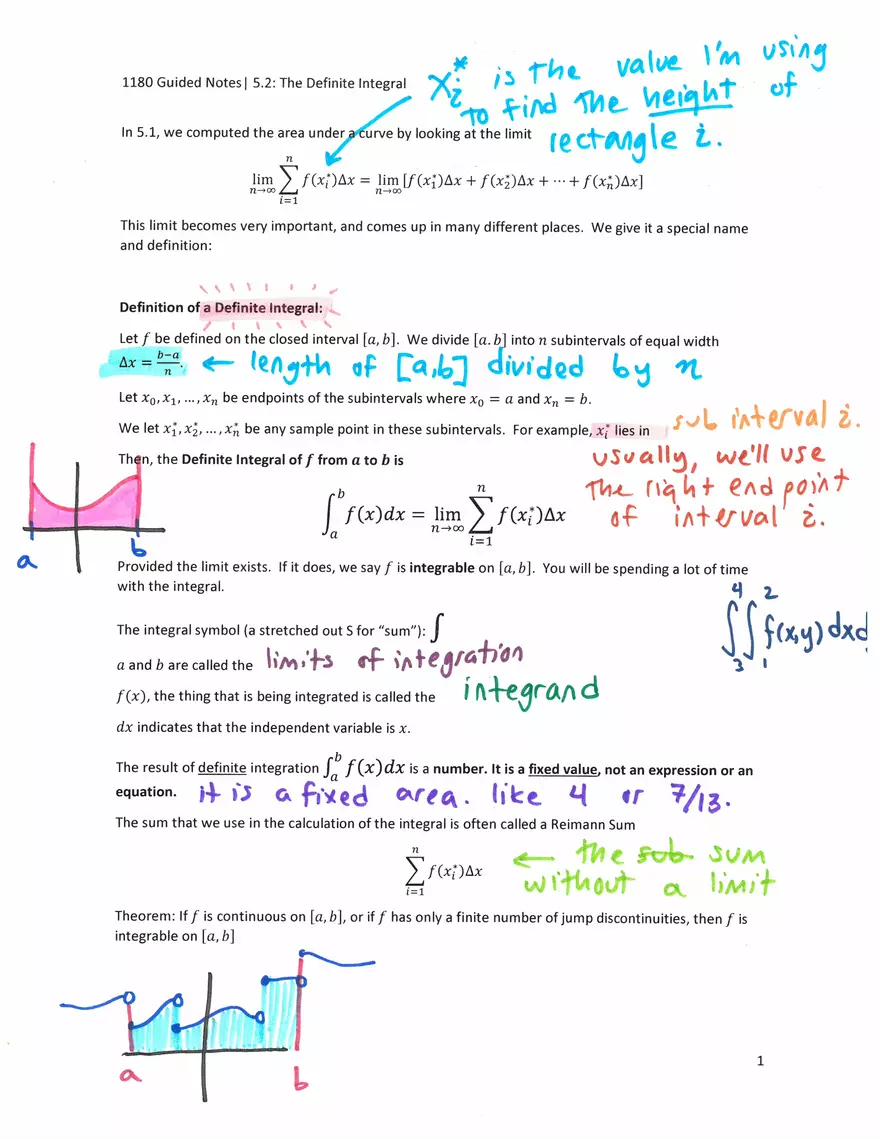 1180 Guided Notes| 5.2: The Definite Integral
x_i^* is the value I'm using
to find the height of
rectangle i.
In 5.1, we computed the area under a curve by looking at the limit
lim_{n→∞} ∑_{i=1}^{n} f(x_i^*)Δx = lim_{n→∞} [f(x_1^*)Δx + f(x_2^*)Δx + ⋯ + f(x_n^*)Δx]
This limit becomes very important, and comes up in many different places. We give it a special name
and definition:
Definition of a Definite Integral:
Let f be defined on the closed interval [a, b]. We divide [a. b] into n subintervals of equal width
Δx = (b−a)/n. ← length of [a,b] divided by n
Let x_0, x_1, … , x_n be endpoints of the subintervals where x_0 = a and x_n = b.
We let x_1^*, x_2^*, … , x_n^* be any sample point in these subintervals. For example, x_i^* lies in sub interval i.
usually, we'll use
the right end point
of interval i.
Then, the Definite Integral of f from a to b is
∫_a^b f(x)dx = lim_{n→∞} ∑_{i=1}^{n} f(x_i^*)Δx
a b
Provided the limit exists. If it does, we say f is integrable on [a, b]. You will be spending a lot of time
with the integral.
∫_3^4 ∫_1^2 f(x,y) dxd
The integral symbol (a stretched out S for “sum”): ∫
a and b are called the limits of integration
f(x), the thing that is being integrated is called the integrand
dx indicates that the independent variable is x.
The result of definite integration ∫_a^b f(x)dx is a number. It is a fixed value, not an expression or an
equation. it is a fixed area. like 4 or 7/13.
The sum that we use in the calculation of the integral is often called a Reimann Sum
∑_{i=1}^{n} f(x_i^*)Δx ← the sub sum
without a limit
Theorem: If f is continuous on [a, b], or if f has only a finite number of jump discontinuities, then f is
integrable on [a, b]
a b
1